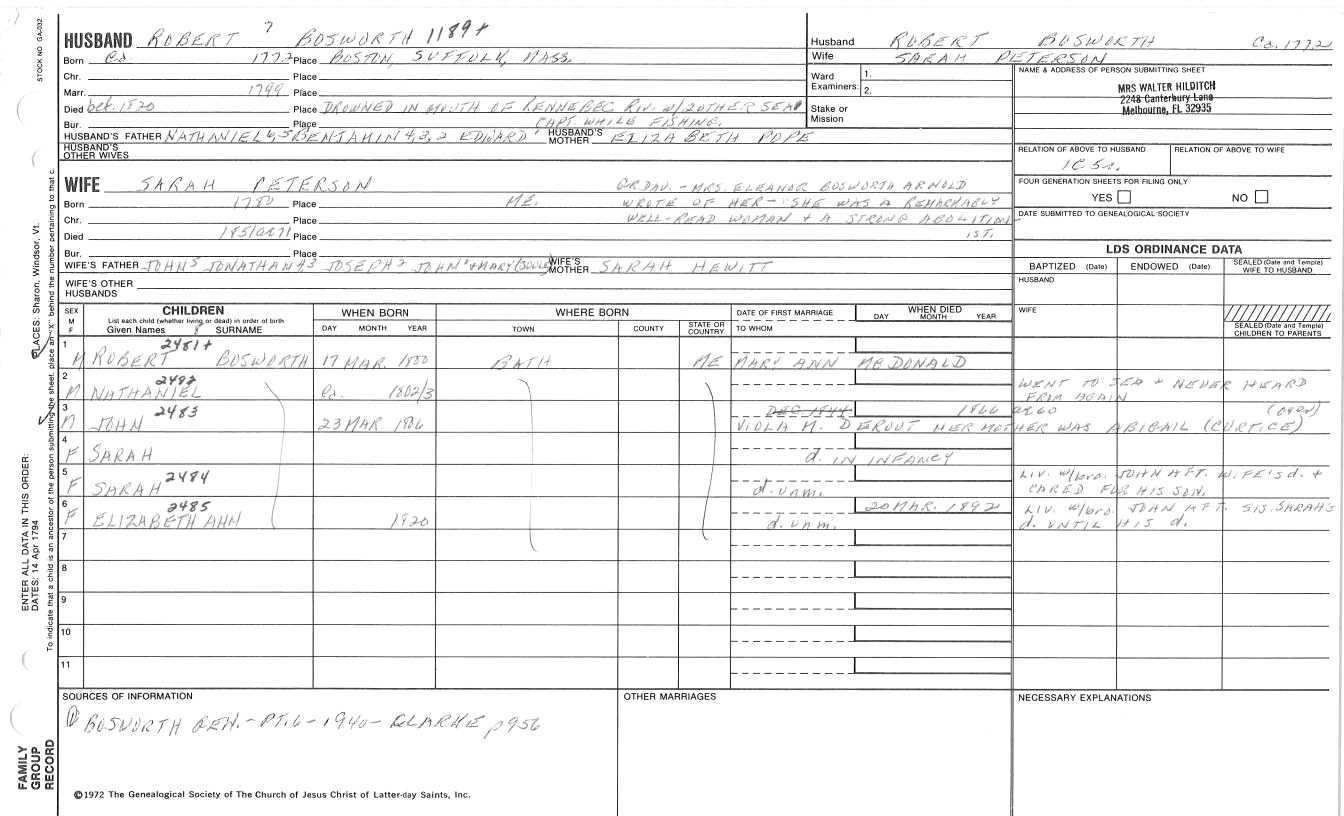 STOCK NO GA-032
HUSBAND ROBERT 7 BOSWORTH 1189+
Born Ca. 1772 Place BOSTON, SUFFOLK, MASS.
Chr. Place
Marr. 1799 Place
Died bet. 1820 Place DROWNED IN MOUTH OF KENNEBEC RIV. W/2 OTHER SEA
Bur. Place CAPT WHILE FISHING.
HUSBAND'S FATHER NATHANIEL 6,5 BENJAMIN 4,3,2 EDWARD 1 HUSBAND'S MOTHER ELIZABETH POPE
HUSBAND'S OTHER WIVES
Husband ROBERT BOSWORTH Ca. 1772
Wife SARAH PETERSON
Ward Examiners: 1. 2.
Stake or Mission
NAME & ADDRESS OF PERSON SUBMITTING SHEET
MRS WALTER HILDITCH
2248 Canterbury Lane
Melbourne, FL 32935
RELATION OF ABOVE TO HUSBAND RELATION OF ABOVE TO WIFE
1C 5r.
FOUR GENERATION SHEETS FOR FILING ONLY
YES NO
DATE SUBMITTED TO GENEALOGICAL SOCIETY
WIFE SARAH PETERSON GR.DAU. - MRS. ELEANOR BOSWORTH ARNOLD
Born 1780 Place ME. WROTE OF HER - SHE WAS A REMARKABLY
Chr. Place WELL-READ WOMAN + A STRONG ABOLITION-
Died 1851 Place IST.
Bur. Place
WIFE'S FATHER JOHN 5 JONATHAN 4,3 JOSEPH 2 JOHN 1 + MARY (SOULE) WIFE'S MOTHER SARAH HEWITT
WIFE'S OTHER HUSBANDS
LDS ORDINANCE DATA
BAPTIZED (Date) ENDOWED (Date) SEALED (Date and Temple) WIFE TO HUSBAND
HUSBAND
WIFE
SEALED (Date and Temple) CHILDREN TO PARENTS
SEX M F CHILDREN WHEN BORN WHERE BORN DATE OF FIRST MARRIAGE WHEN DIED
List each child (whether living or dead) in order of birth
Given Names 8 SURNAME DAY MONTH YEAR TOWN COUNTY STATE OR COUNTRY TO WHOM DAY MONTH YEAR
1 2481+
M ROBERT BOSWORTH 17 MAR. 1800 BATH ME MARY ANN McDONALD
2 2482
M NATHANIEL Ca. 1802/3 WENT TO SEA + NEVER HEARD FROM AGAIN
3 2483 DEC 1844 1866
M JOHN 23 MAR 1806 VIOLA M. DEROUT HER MOTHER WAS ABIGAIL (CURTICE)
4
F SARAH d. IN INFANCY
5 2484
F SARAH d. unm. LIV. w/bro. JOHN AFT. WIFE'S d. + CARED FOR HIS SON.
6 2485 20 MAR. 1892
F ELIZABETH ANN 1820 d. unm. LIV. w/bro. JOHN AFT. SIS. SARAH'S d. UNTIL HIS d.
7
8
9
10
11
SOURCES OF INFORMATION OTHER MARRIAGES NECESSARY EXPLANATIONS
① BOSWORTH GEN. - PT. 6 - 1940 - CLARKE p956
©1972 The Genealogical Society of The Church of Jesus Christ of Latter-day Saints, Inc.
FAMILY GROUP RECORD
ENTER ALL DATA IN THIS ORDER:
DATES: 14 Apr 1794 PLACES: Sharon, Windsor, Vt.
To indicate that a child is an ancestor of the person submitting the sheet, place an "X" behind the number pertaining to that c.